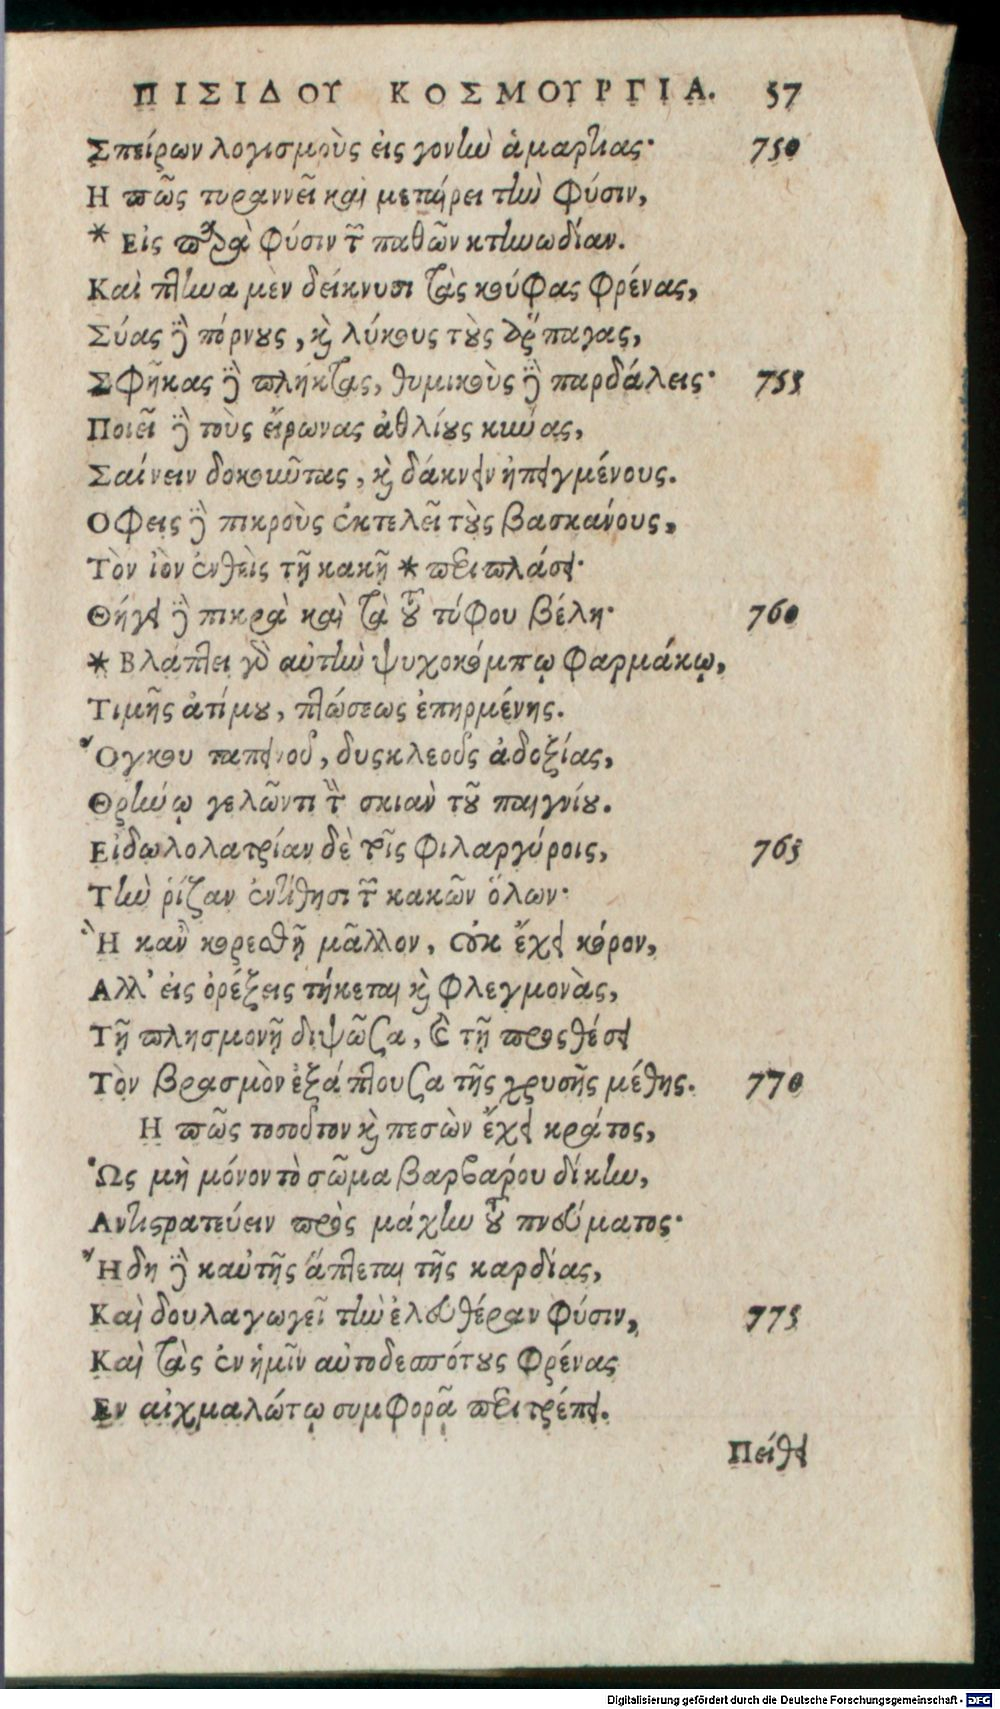 ΠΙΣΙΔΟΥ ΚΟΣΜΟΥΡΓΙΑ. 57
Σπείρων λογισμοὺς εἰς γονὴν ἁμαρτίας· 750
Η πῶς τυραννεῖ καὶ μεταίρει τὴν φύσιν,
* Εἰς παρὰ φύσιν τῶν παθῶν κτηνωδίαν.
Καὶ πτηνα μὲν δείκνυσι τὰς κούφας φρένας,
Σύας δὲ πόρνους, καὶ λύκους τοὺς ἅρπαγας,
Σφῆκας δὲ πλήκτας, θυμικοὺς δὲ παρδάλεις· 755
Ποιεῖ δὲ τοὺς εἴρωνας ἀθλίους κύνας,
Σαίνειν δοκοῦντας, καὶ δάκνειν ἠπειγμένους.
Οφεις δὲ πικροὺς ἐκτελεῖ τοὺς βασκάνους,
Τὸν ἰὸν ἐνθεὶς τῇ κακῇ * περιπλάσει·
Θήγει δὲ πικρὰ καὶ τὰ τοῦ τύφου βέλη· 760
* Βλάπτει γὰρ αὐτὴν ψυχοκόμπῳ φαρμάκῳ,
Τιμῆς ἀτίμου, πτώσεως ἐπηρμένης.
Ὄγκου ταπεινοῦ, δυςκλεοῦς ἀδοξίας,
Θρήνῳ γελῶντι τὴν σκιὰν τοῦ παιγνίου.
Εἰδωλολατρίαν δὲ τοῖς φιλαργύροις, 765
Τὴν ῥίζαν ἐντίθησι τῶν κακῶν ὅλων·
Ἢ κἂν κορεσθῇ μᾶλλον, οὐκ ἔχει κόρον,
Αλλ' εἰς ὀρέξεις τήκεται καὶ φλεγμονὰς,
Τῇ πλησμονῇ διψῶσα, καὶ τῇ προςθέσει
Τὸν βρασμὸν ἐξάπτουσα τῆς χρυσῆς μέθης. 770
Η πῶς τοσοῦτον καὶ πεσὼν ἔχει κράτος,
Ὡς μὴ μόνον τὸ σῶμα βαρβάρου δίκην,
Αντιστρατεύειν πρὸς μάχην τοῦ πνεύματος·
Ἤδη δὲ καὐτῆς ἅπτεται τῆς καρδίας,
Καὶ δουλαγωγεῖ τὴν ἐλευθέραν φύσιν, 775
Καὶ τὰς ἐν ἡμῖν αὐτοδεσπότους φρένας
Εν αἰχμαλώτῳ συμφορᾷ περιτρέπει.
Πείθει
Digitalisierung gefördert durch die Deutsche Forschungsgemeinschaft - DFG